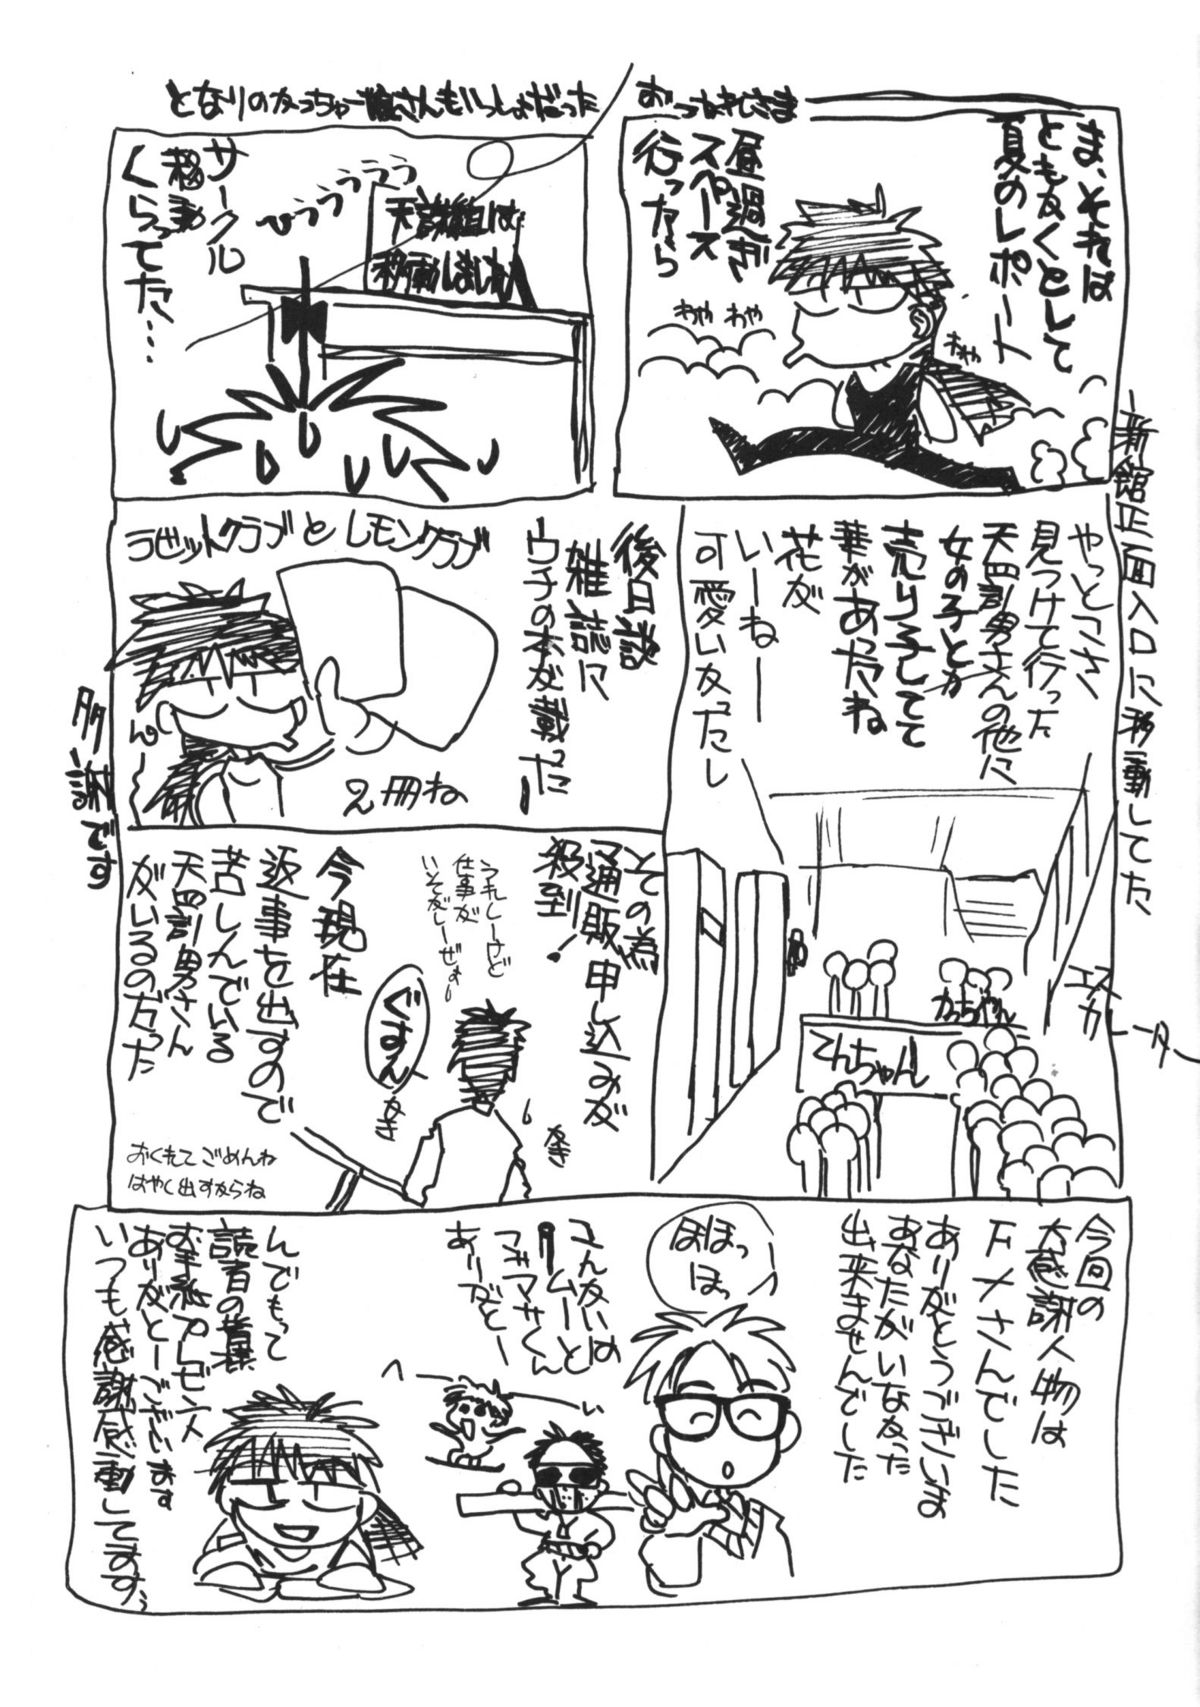 ま、それは
ともかくとして
夏のレポート
昼過ぎ
スペース
行ったら
わや
わや
わや
おつかれさま
となりのかっちゃん
さんもいっしょだった
天誅組は
移動しました
ひううううう
サークル
移動
くらってた…
新館正面入口に移動してた
やっとこさ
見つけて行った
天四訓男さんの他に
女の子とか
売り子してて
華があったね
花が
いーねー
可愛いかったし
エスカレーター
かっちゃん
てんちゃん
後日談
雑誌に
ウチの本が載った
ラビットクラブとレモンクラブ
2冊ね
ん〜
多謝です
その為
通販申し込みが
殺到!
うれしーけど
仕事が
いそがしーぜぇー
ぐすん
なき
なき
今現在
返事を出すので
苦しんでいる
天四訓男さん
がいるのだった
おくれてごめんね
はやく出すからね
今回の
大感謝人物は
Fメさんでした
ありがとうございは
あなたがいなかった
出来ませんでした
ほほっ
ほっ
こんかいは
ムーと
コギマサくん
ありがとー
んでもって
読者の皆様
お手紙プレゼント
ありがとーございます
いつも感謝感動してます